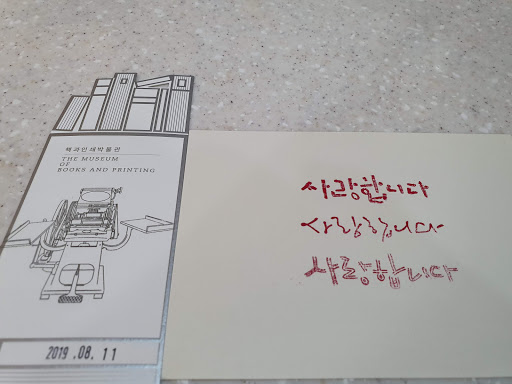 책과인쇄박물관
THE MUSEUM
OF
BOOKS AND PRINTING
2019.08.11
사랑합니다
사랑합니다
사랑합니다